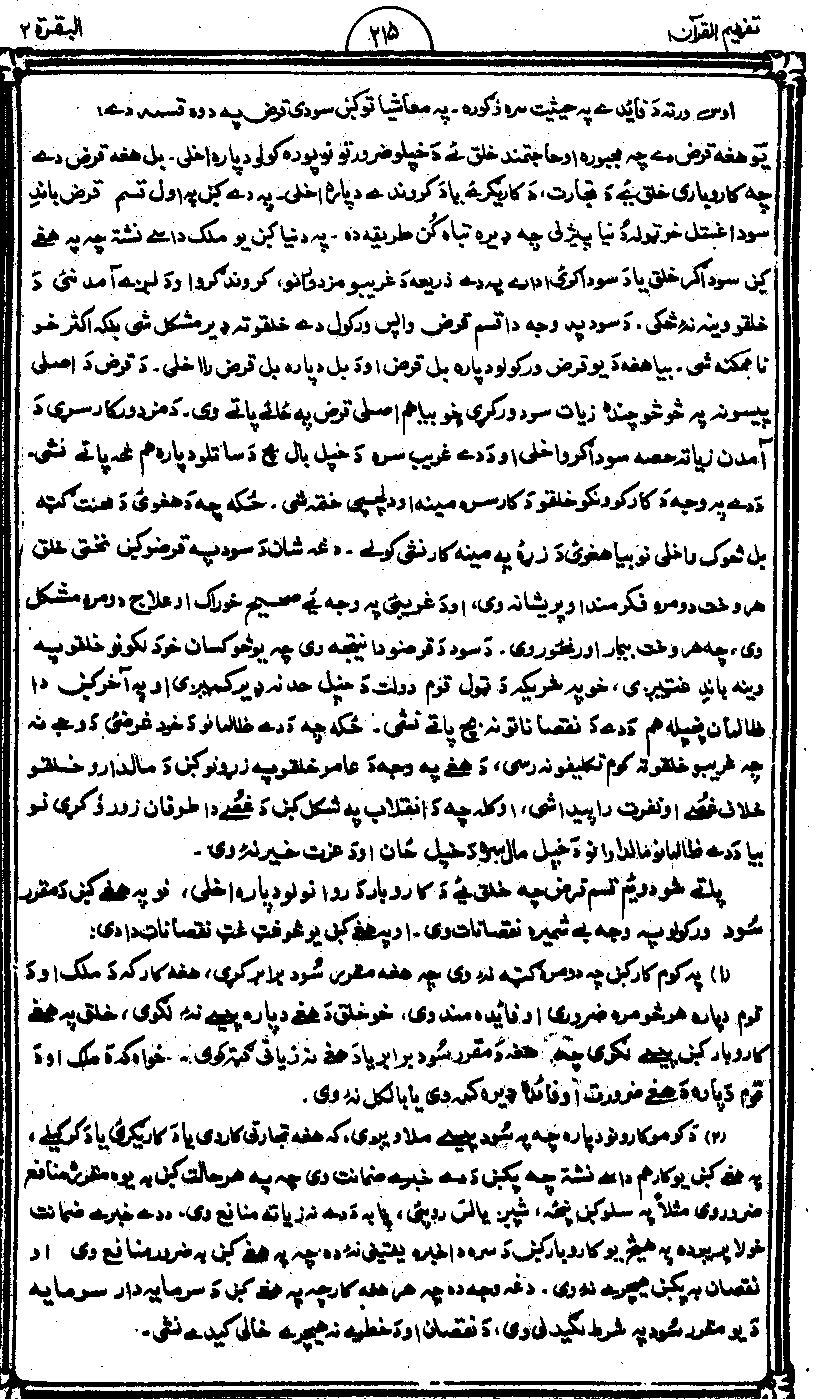 تفهیم القرآن ۱
۲۱۵
البقرة ۲
اوس ورته د فائدے په حیثیت سره ذکوره۔ په معاشیاتو کښ سودی قرض په دوه قسمه دے:
یو هغه قرض دے چه مجبوره او حاجتمند خلق ئے د خپلو ضرورتونو پوره کولو دپاره اخلی۔ بل هغه قرض دے
چه کاروباری خلق ئے د تجارت، د کاریګرئ یا د کروندے دپاره اخلی۔ په دے کښ په اول قسم قرض باندِ
سود اغستل خو ټوله دُنیا پیژنی چه ډیره تباه کُن طریقه ده۔ په دنیا کښ یو ملک داسے نشته چه په هغے
کښ سوداګر خلق یا د سود اکوئ ادارے په دے ذریعه د غریبو مزدورانو، کروندګرو او د لږے آمدنئ د
خلقو وینه نهٔ څکی۔ د سود په وجه دا قسم قرض واپس ورکول دے خلقو ته ډیر مشکل شی بلکه اکثر خو
ناممکنه شی۔ بیا هغه د یو قرض ورکولو دپاره بل قرض او د بل دپاره بل قرض را اخلی۔ د قرض د اصلی
پیسو نه په څو څو چنده زیات سود ورکړی خو بیا هم اصلی قرض په ځائے پاتے وی۔ د مزدور کار سړی د
آمدن زیاته حصه سوداګر واخلی او د دے غریب سره د خپل بال بچ د ساتلو دپاره هم څه پاتے نشی۔
د دے په وجه د کار کوونکو خلقو د کار سره مینه او دلچسپی ختمه شی۔ ځکه چه د هغوئ د محنت ګټه
بل څوک واخلی نو بیا هغوئ د زړهٔ په مینه کار نشی کولے۔ دغه شان د سود په قرضو کښ نختی خلق
هر وخت دومره فکرمند او پریشانه وی، او د غریبئ په وجه ئے صحیح خوراک او علاج دومره مشکل
وی، چه هر وخت بیمار او رنځور وی۔ د سود د قرضو دا نتیجه وی چه یو څو کسان خو د لکونو خلقو په
وینه باندِ غټیږی، خو په څریګه د ټول قوم دولت د خپل حد نه ډیر کمیږی او په آخر کښ دا
ظالمان پخپله هم د دے د نقصاناتو نه بچ پاتے نشی۔ ځکه چه د دے ظالمانو د خود غرضئ د وجے نه
چه غریبو خلقو ته کوم تکلیفونه رسی، د هغے په وجه د عامو خلقو په زړونو کښ د مالدارو خلقو
خلاف غُصے او نفرت را پیدا شی، او کله چه د انقلاب په شکل کښ د غُصے دا طوفان زور وکړی نو
بیا د دے ظالمانو مالدارانو د خپل مال سره د خپل ځان او د عزت خیر نهٔ وی۔
پاتے شو دویم قسم قرض چه خلق ئے د کاروبار د روانولو دپاره اخلی، نو په هغے کښ د مقرر
سُود ورکولو په وجه بے شمیره نقصانات وی۔ او په هغے کښ یو څو غټ غټ نقصانات دا دی:
(۱) په کوم کار کښ چه دومره ګټه نهٔ وی چه هغه مقرره سُود برابر کړی، هغه کار که د ملک او د
قوم دپاره هر څومره ضروری او فائده مند وی، خو خلق د هغے دپاره پیسے نهٔ لګوی، خلق په هغے
کاروبار کښ پیسے لګوی چه هغه د مقرر سُود برابر یا د هغے نه زیاتی ګټه کوی۔ خواه که د ملک او د
قوم دپاره د هغے ضرورت او فائده ډیره کمه وی یا بالکل نهٔ وی۔
(۲) د کومو کارونو دپاره چه په سُود پیسے ملاویږی، که هغه تجارتی کار دی یا د کاریګرئ یا د کرکیلے،
په هغے کښ یو کار هم داسے نشته چه پکښ د دے خبرے ضمانت وی چه په هر حالت کښ به یوه مقرره منافع
ضرور وی مثلاً په سلو کښ پنځه، شپږ یا لس روپئ، یا به د دے نه زیاته منافع وی۔ د دے خبرے ضمانت
خو لا پریږده په هیڅ یو کاروبار کښ د سره دا خبره یقینی نهٔ ده چه په هغے کښ به ضرور منافع وی او
نقصان به پکښ هیچرے نهٔ وی۔ دغه وجه ده چه هر هغه کار چه په هغے کښ د سرمایه دار سرمایه
د یو مقرر سُود په شرط لګیدلی وی، د نقصان او د خطرے نه هیچرے خالی کیدے نشی۔